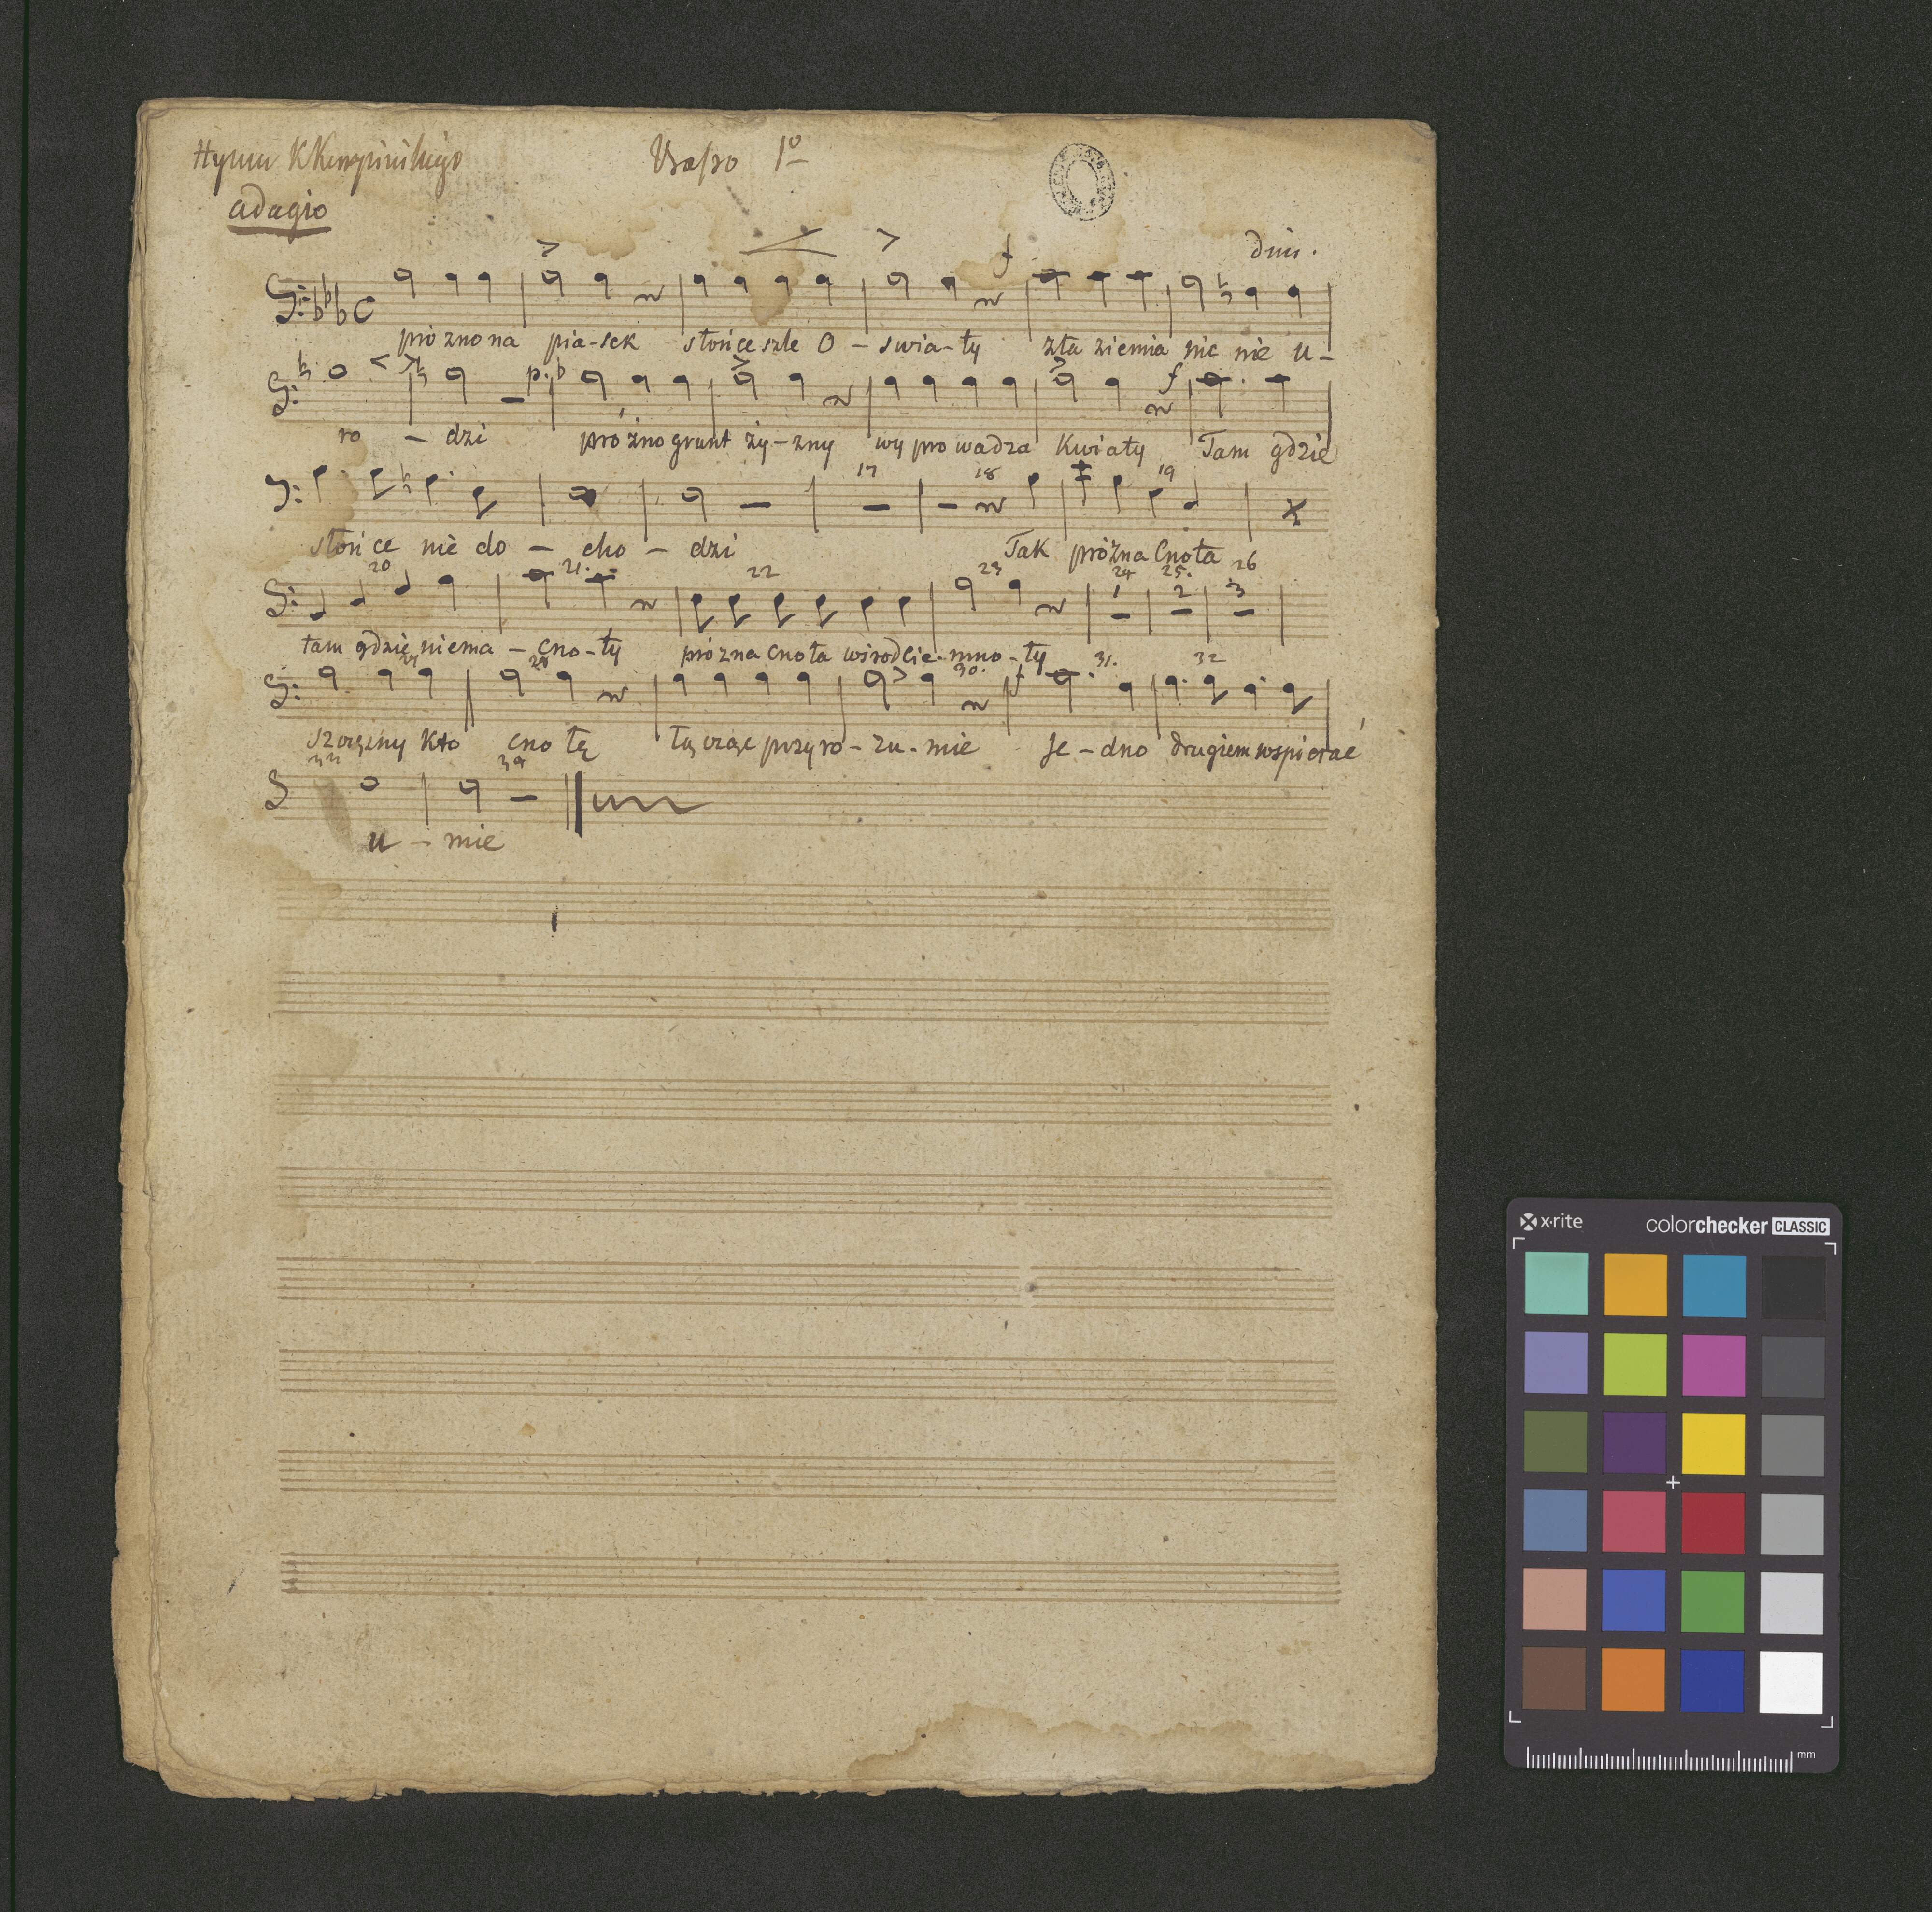 Hymn K Kurpińskiego Basso 1º
adagio
f dim.
prózno na pia-sek słońce szle O - swia-ty zła ziemia nic nie u-
p: f
ro - dzi próżno grunt ży-zny wy prowadza Kwiaty Tam gdzie
17 18 19
słońce nie do - cho - dzi Tak próżna Cnota
20 21. 22 23 24 25. 26
1 2 3
tam gdzie niema - cno-ty prózna cnota wśrod cie-mno-ty
27 28 30. f 31. 32
Szczęsny Kto cno tę łącząc przy ro-zu-mie Je-dno drugiem wspierać
33 34
u - mie
x·rite colorchecker CLASSIC
mm